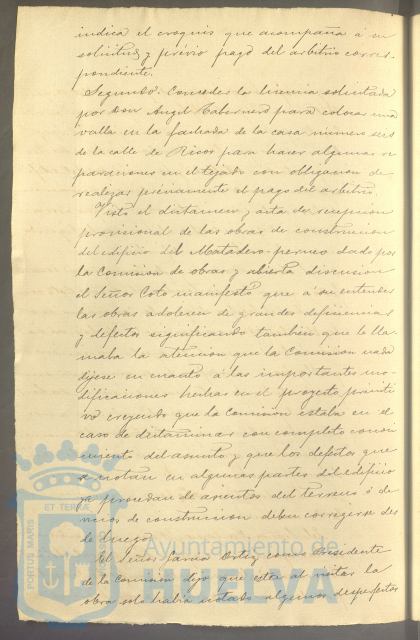 indica el croquis que acompaña á su
solicitud y prévio pago del arbitrio corres-
pondiente.
Segundo. Conceder la licencia solicitada
por Don Angel Tabernero para colocar una
valla en la fachada de la casa número seis
de la calle de Ricos para hacer algunas re
paraciones en el tejado con obligacion de
realizar préviamente el pago del arbitrio.
Visto el dictamen y acta de recepcion
provisional de las obras de construccion
del edificio del Matadero dado por
la Comision de obras y abierta discusion
el Señor Coto manifestó que á su entender
las obras adolecen de grandes deficiencias
y defectos significando tambien que le lla-
maba la atencion que la Comision nada
dijese en cuanto á las importantes mo-
dificaciones hechas en el proyecto primiti
vo creyendo que la Comision estaba en el
caso de dictaminar con completo conoci
miento del asunto y que los defectos que
se notan en algunas partes del edificio
ya procedan de asientos del terreno ó de
vicios de construccion deben corregirse des
de luego.
El Señor Garcia Ortiz como Presidente
de la Comision dijo que esta al visitar la
obra solo habia notado algunos desperfectos
PORTUS MARIS
ET TERRÆ
Ayuntamiento de
HUELVA